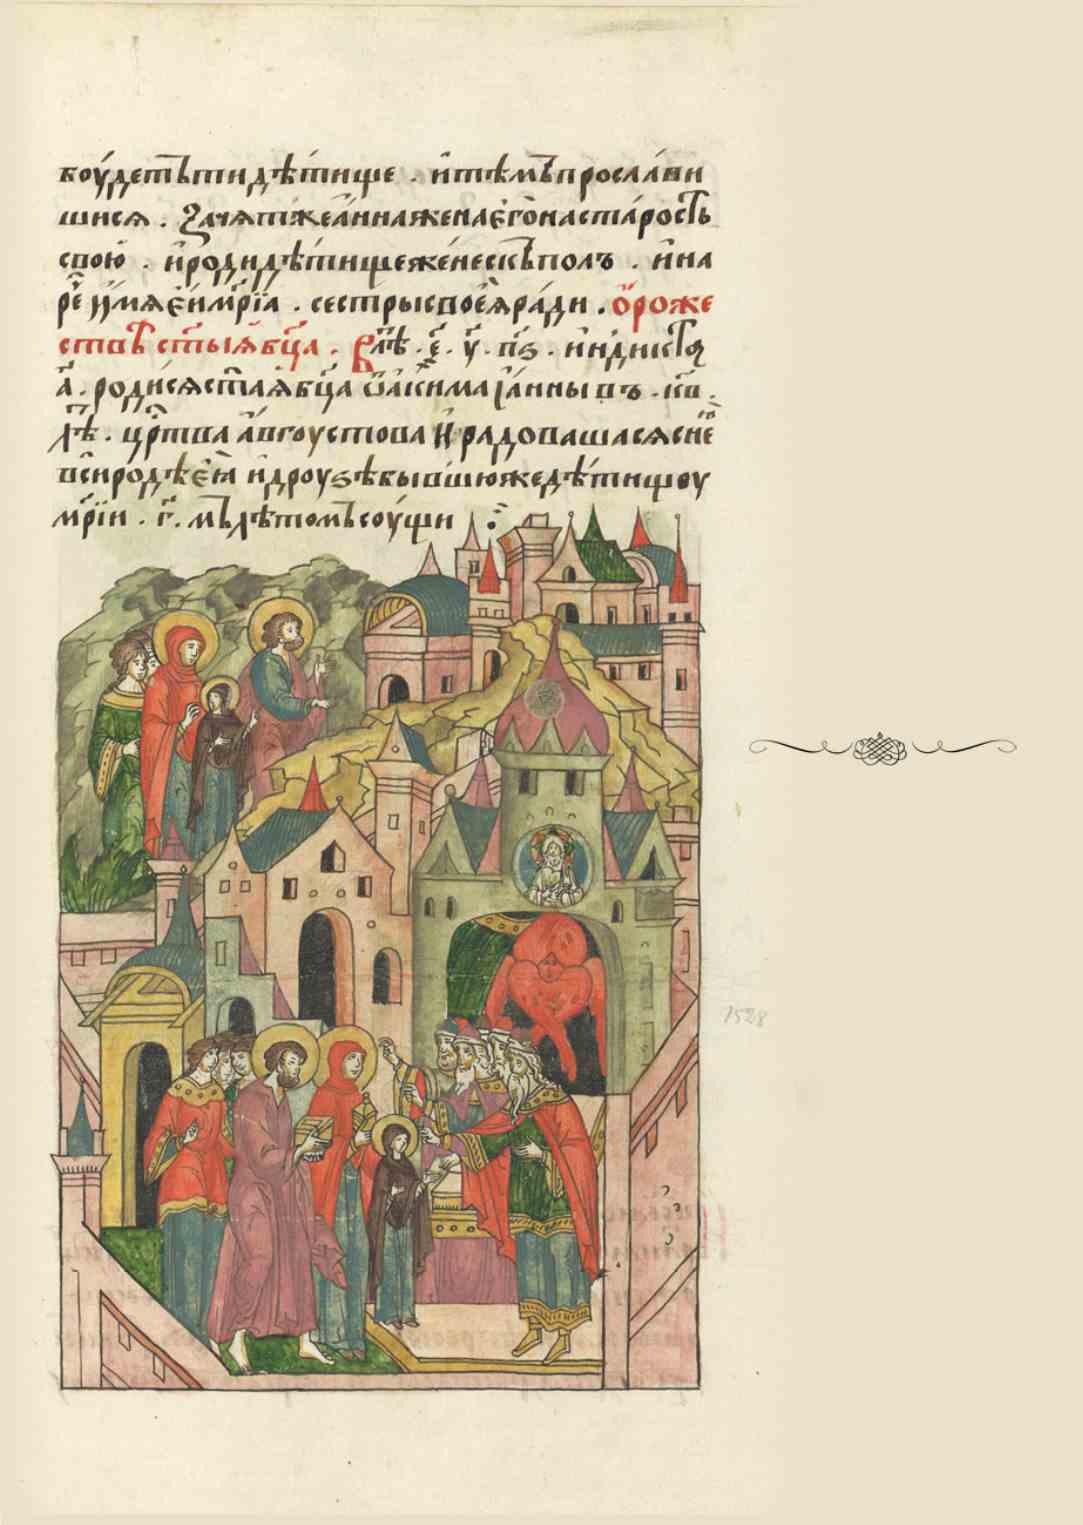 боу́детьтидѣ́тище . и҆тѣ́мъпросла́ви
шися . Зача́тжеа҆́ннаженаего҆наста́рость
свою̀ . и҆родидѣ́тищеже́нескъполъ . и҆на
ре҇ и҆́мяе҆и҆мр҃і́а . сестрысвоеяра́ди . ѽроже
ствѣ ст҃ыябц҃а . Влѣ҇ . ҂е҃ . у҃ . п҃ѕ . инди́кта
а҃ . роди́сяст҃аябц҃а ѿаки́маіа҆́нны въ . к҃в .
лѣ҇ . цр҇тва а҆́вгоустова и҆ радовашасясне́
вси́родѣе҆я̀ и҆дроуѕѣбывшюжедѣ́тищоу
мр҃і́и . г҃ . мълѣ́томъсоу́щи
1528